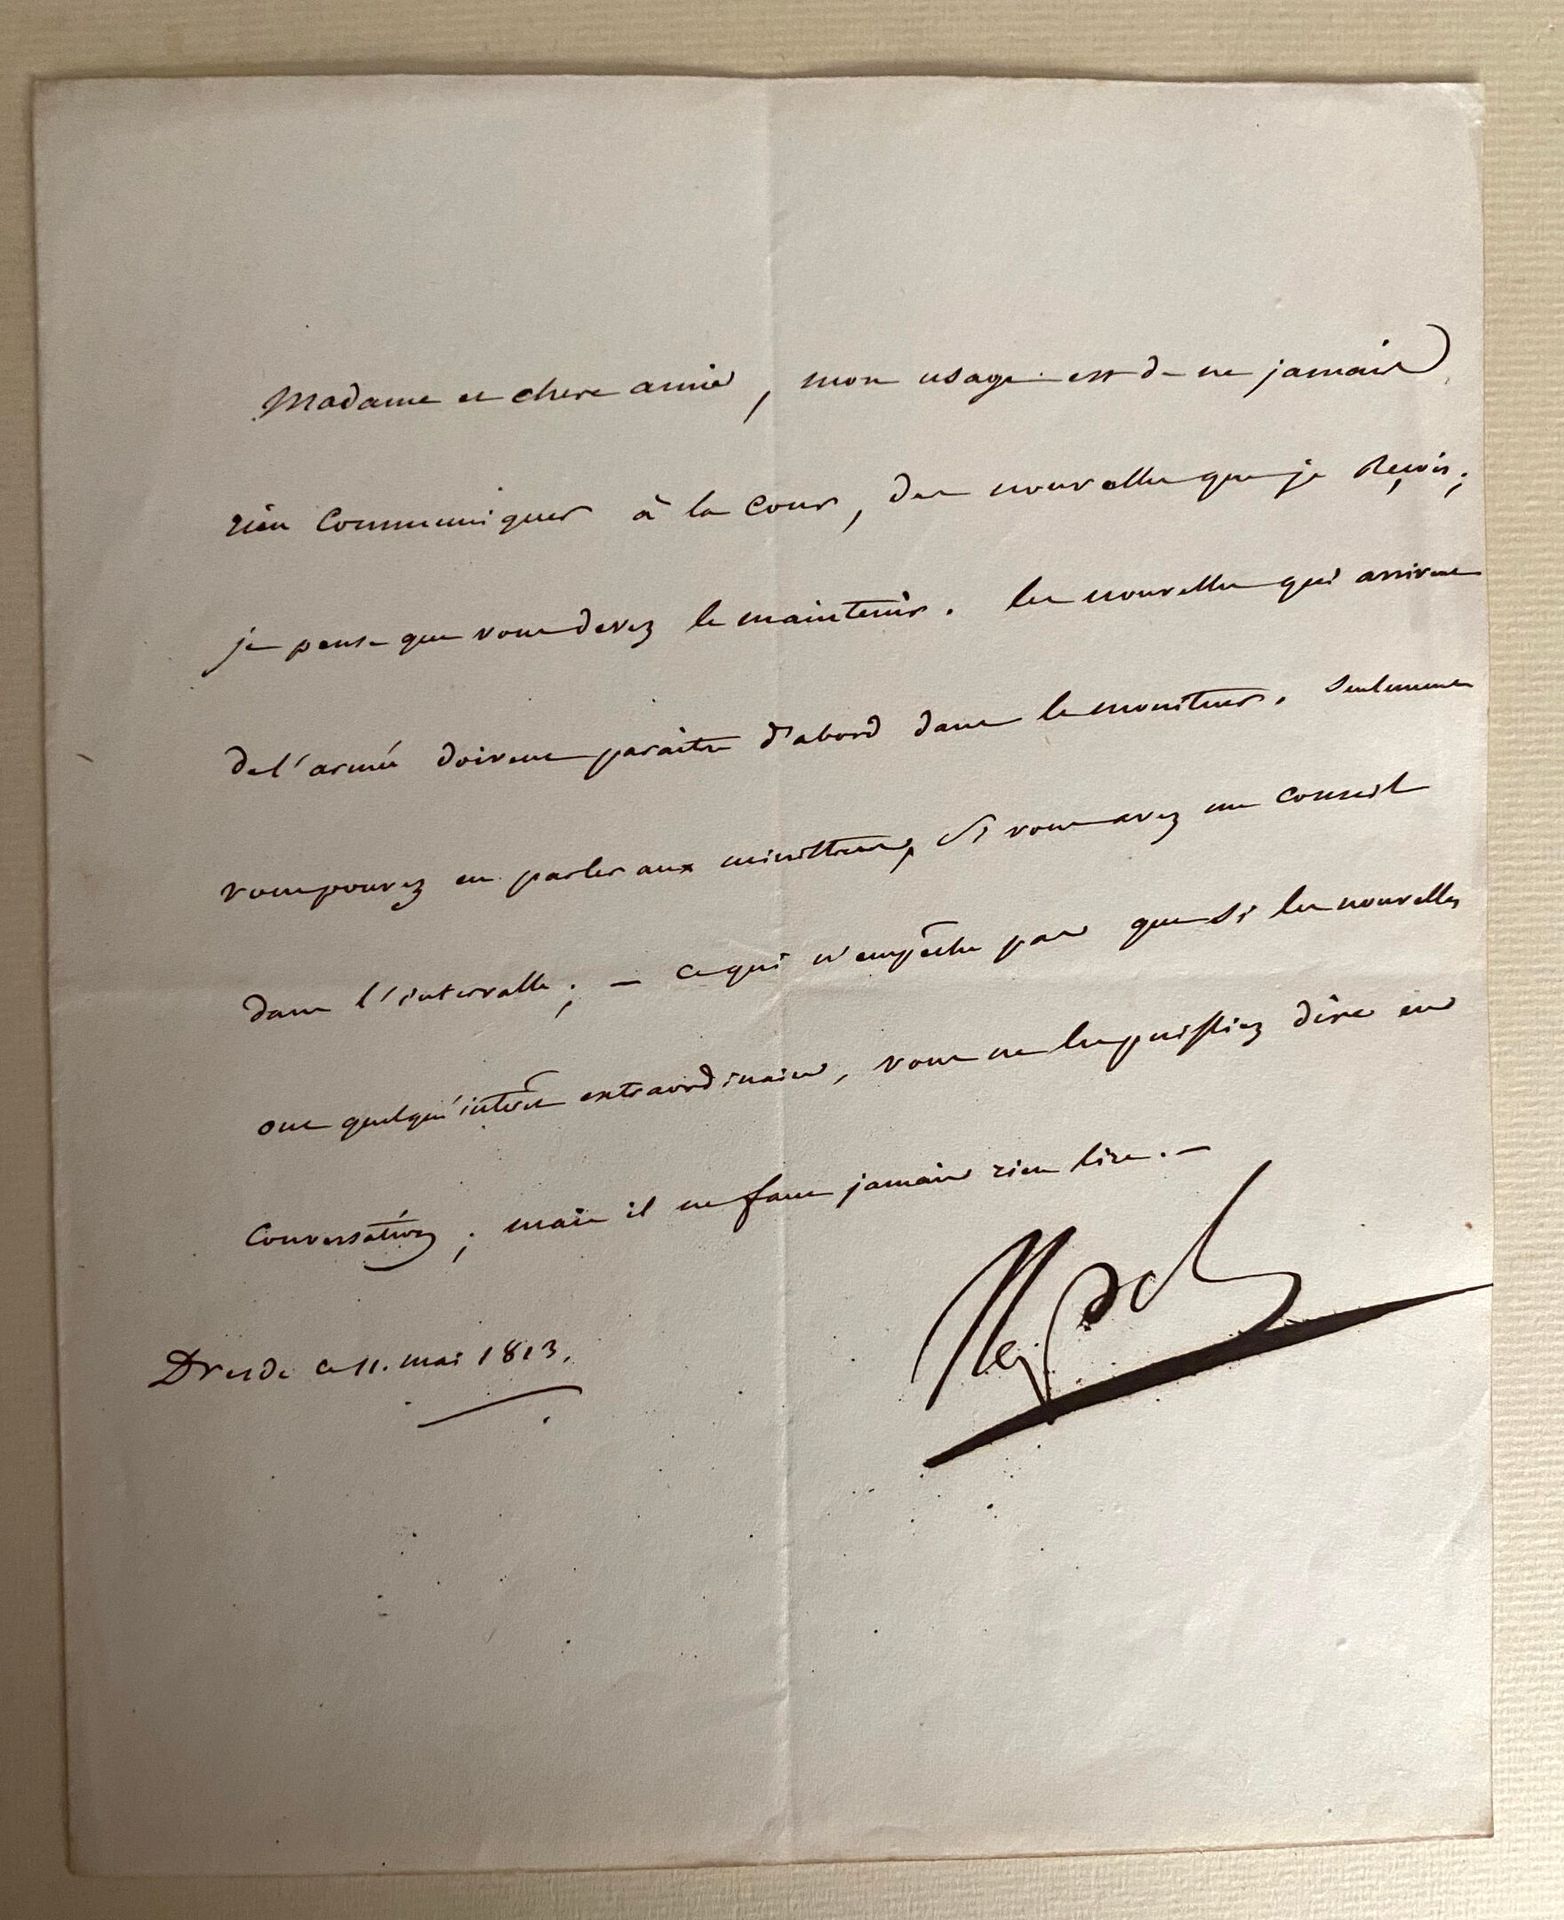 Madame et chere amie, mon usage est de ne jamais
rien communiquer à la Cour, des nouvelles que je Reçois;
je pense que vous devez le maintenir. les nouvelles qui arrivent
de l'armée doivent paraître d'abord dans le moniteur. Seulement
vous pouvez en parler aux ministres, Si vous avez un conseil
dans l'intervalle; — ce qui n'empêche pas que si les nouvelles
ont quelqu'intérêt extraordinaire, vous ne les puissiez dire en
Conversation; mais il ne faut jamais rien lire. —
Dresde ce 11. mai 1813.